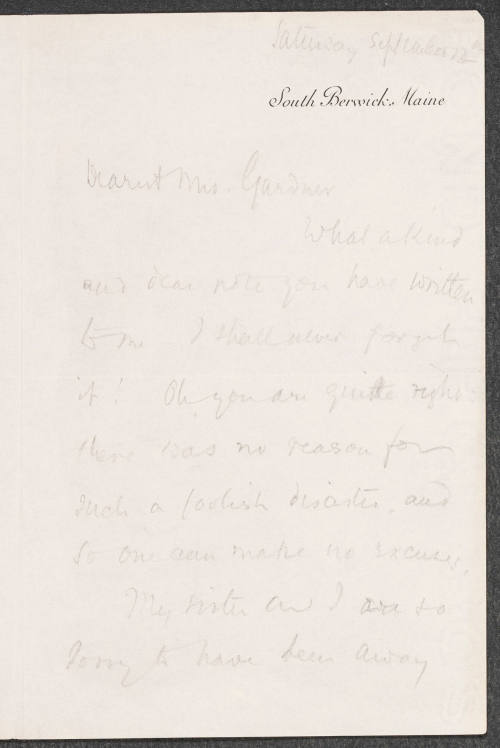 Saturday September 22nd
South Berwick, Maine
Dearest Mrs. Gardner
What a kind
and dear note you have written
to me I shall never forget
it! Oh, you are quite right
there was no reason for
such a foolish disaster, and
so one can make no excuses.
My sister and I are so
sorry to have been away